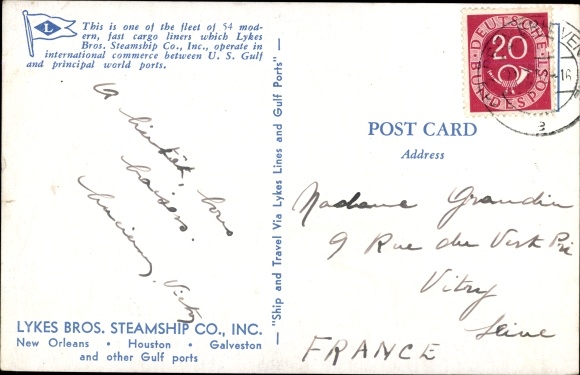 L
This is one of the fleet of 54 mod-
ern, fast cargo liners which Lykes
Bros. Steamship Co., Inc., operate in
international commerce between U. S. Gulf
and principal world ports.
A bientôt, bons
baisers.
Vicky
LYKES BROS. STEAMSHIP CO., INC.
New Orleans • Houston • Galveston
and other Gulf ports
—"Ship and Travel Via Lykes Lines and Gulf Ports"—
DEUTSCHE BUNDESPOST
20
16
e
POST CARD
Address
Madame Grandin
9 Rue du Vert Pré
Vitry
Seine
FRANCE